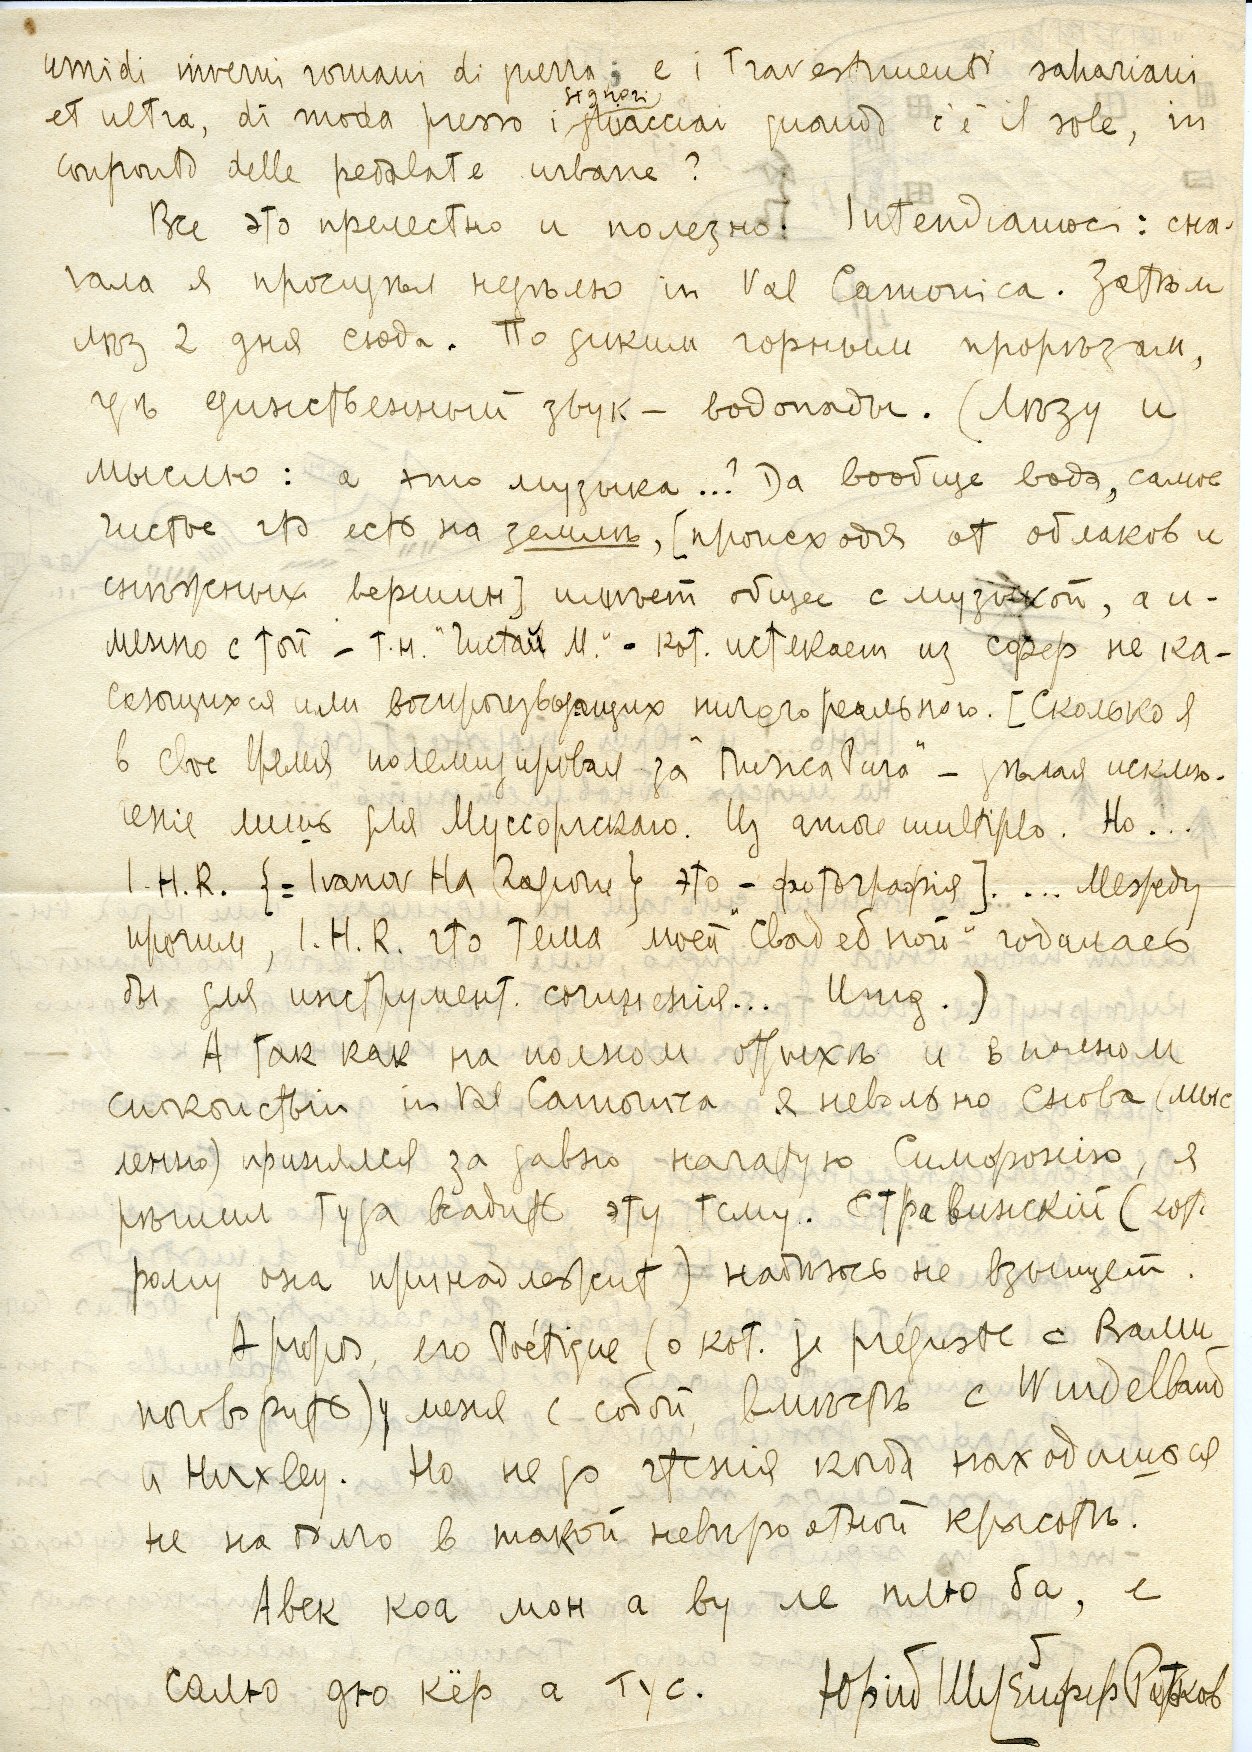 umidi inverni romani di guerra; e i travestimenti sahariani
signori
et ultra, di moda presso i ghiacciai quando c'è il sole, in
confronto delle pedalate urbane?
Все это прелестно и полезно. Intendiamoci: сна-
чала я прочудѣл недѣлю in Val Camonica. Затѣм
лѣз 2 дня сюда. По диким горным прорѣзам,
гдѣ единственный звук – водопады. (Лѣзу и
мыслю: а это музыка...? Да вообще вода, самое
чистое что есть на землѣ, [происходя от облаков и
снѣжных вершин] имѣет общее с музыкой, а и-
менно с той – т.н. "Чистай М." - кот. истекает из сфер не ка-
сающихся или воспроизводящих ничего реального. [Сколько я
в свое время полемизировал за "Musica Pura" – дѣлая исклю-
ченiе лишь для Муссоргскаго. Из amore multiplo. Но...
I.H.R. {= Ivanov На Rадioне} это – фотографiя]. ... Между
прочим, I.H.R. что тема моей "Свадебной" годилась
бы для инструмент. сочиненiя... Итд.)
А так как на полном отдыхѣ и в полном
спокойствiи in Val Camonica я невольно снова (мыс
ленно) принялся за давно начатую Симфонiю, я
рѣшил туда всадить эту тему. Стравинскiй (кот
рому она принадлежит) надѣюсь не взыщет.
A propos, его Poétique (о кот. je préguste с Вами
поговорить) у меня с собой, вмѣстѣ с Windelband
и Huxley. Но не до чтенiя когда находишься
не надолго в такой невѣроятной красотѣ.
Авек коа мон а ву ле плю ба, е
салю дю кёр а тус. Юрiй